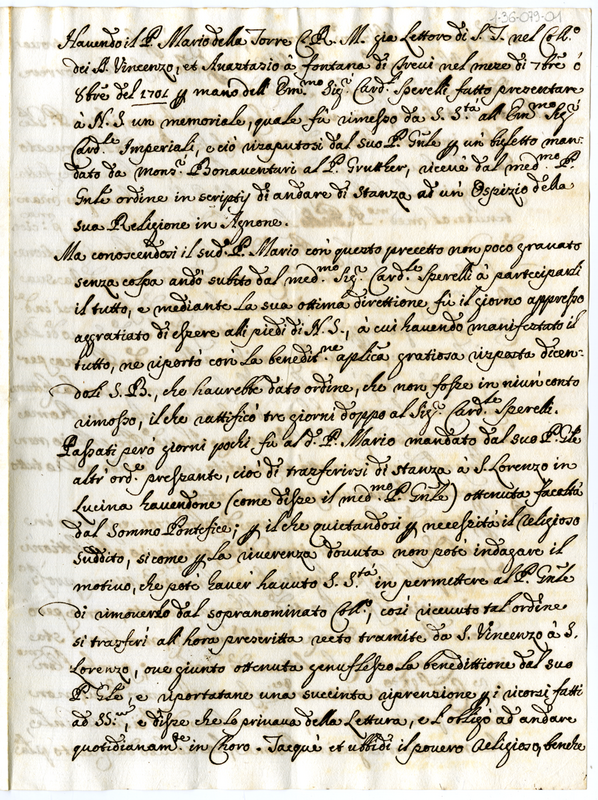 1-36-099-01
Havendo il P. Mario della Torre C. R. M. già Lettore di S. T. nel Coll.o
dei SS. Vincenzo, et Anastazio à fontana di Trevi nel mese di 7bre ò
8bre del 1701 p mano dell' Em.mo Sig.r Card.le Sperelli fatto presentare
à N. S. un memoriale, quale fù rimesso da S. S.tà all' Em.mo Sig.r
Card.le Imperiali, e ciò risaputosi dal suo P. Gnle p un biglietto man-
dato da mons.r Bonaventuri al P. Grutther, ricevè dal med.mo P.
Gnle ordine in scriptis di andare di stanza ad un' Ospizio della
sua Religione in Agnone.
Ma conoscendosi il sud.o P. Mario con questo precetto non poco gravato
senza colpa andò subito dal med.mo Sig.r Card.le Sperelli à participarli
il tutto, e mediante la sua ottima direttione fù il giorno appresso
aggratiato di essere alli piedi di N. S., à cui havendo manifestato il
tutto, ne riportò con la benedit.ne aplica gratiosa risposta dicen-
doli S. B., che haurebbe dato ordine, che non fosse in niun conto
rimosso, il che rattificò tre giorni doppo al Sig.r Card.le Sperelli.
Passati però giorni pochi fù al d.o P. Mario mandato dal suo P. Gle
altr' ord.e pressante, cioè di trasferirsi di stanza à S. Lorenzo in
Lucina havendone (come disse il med.mo P. Gnle) ottenuta facoltà
dal Sommo Pontefice; p il che quietandosi p necessità il Religioso
suddito, si come p la riverenza dovuta non potè indagare il
motivo, che potè haver havuto S. S.tà in permettere al P. Gnle
di rimoverlo dal sopranominato Coll.o, così ricevuto tal ordine
si trasferì all' hora prescritta recto tramite da S. Vincenzo à S.
Lorenzo, ove giunto ottenuta genuflesso la benedittione dal suo
P. Gle, e riportatane una succinta riprensione p i ricorsi fatti
ad SS.m, e disse che lo privava della Lettura, e l'obligò ad andare
quotidianam.te in Choro. Tacque et ubbidì il povero Religioso, benche